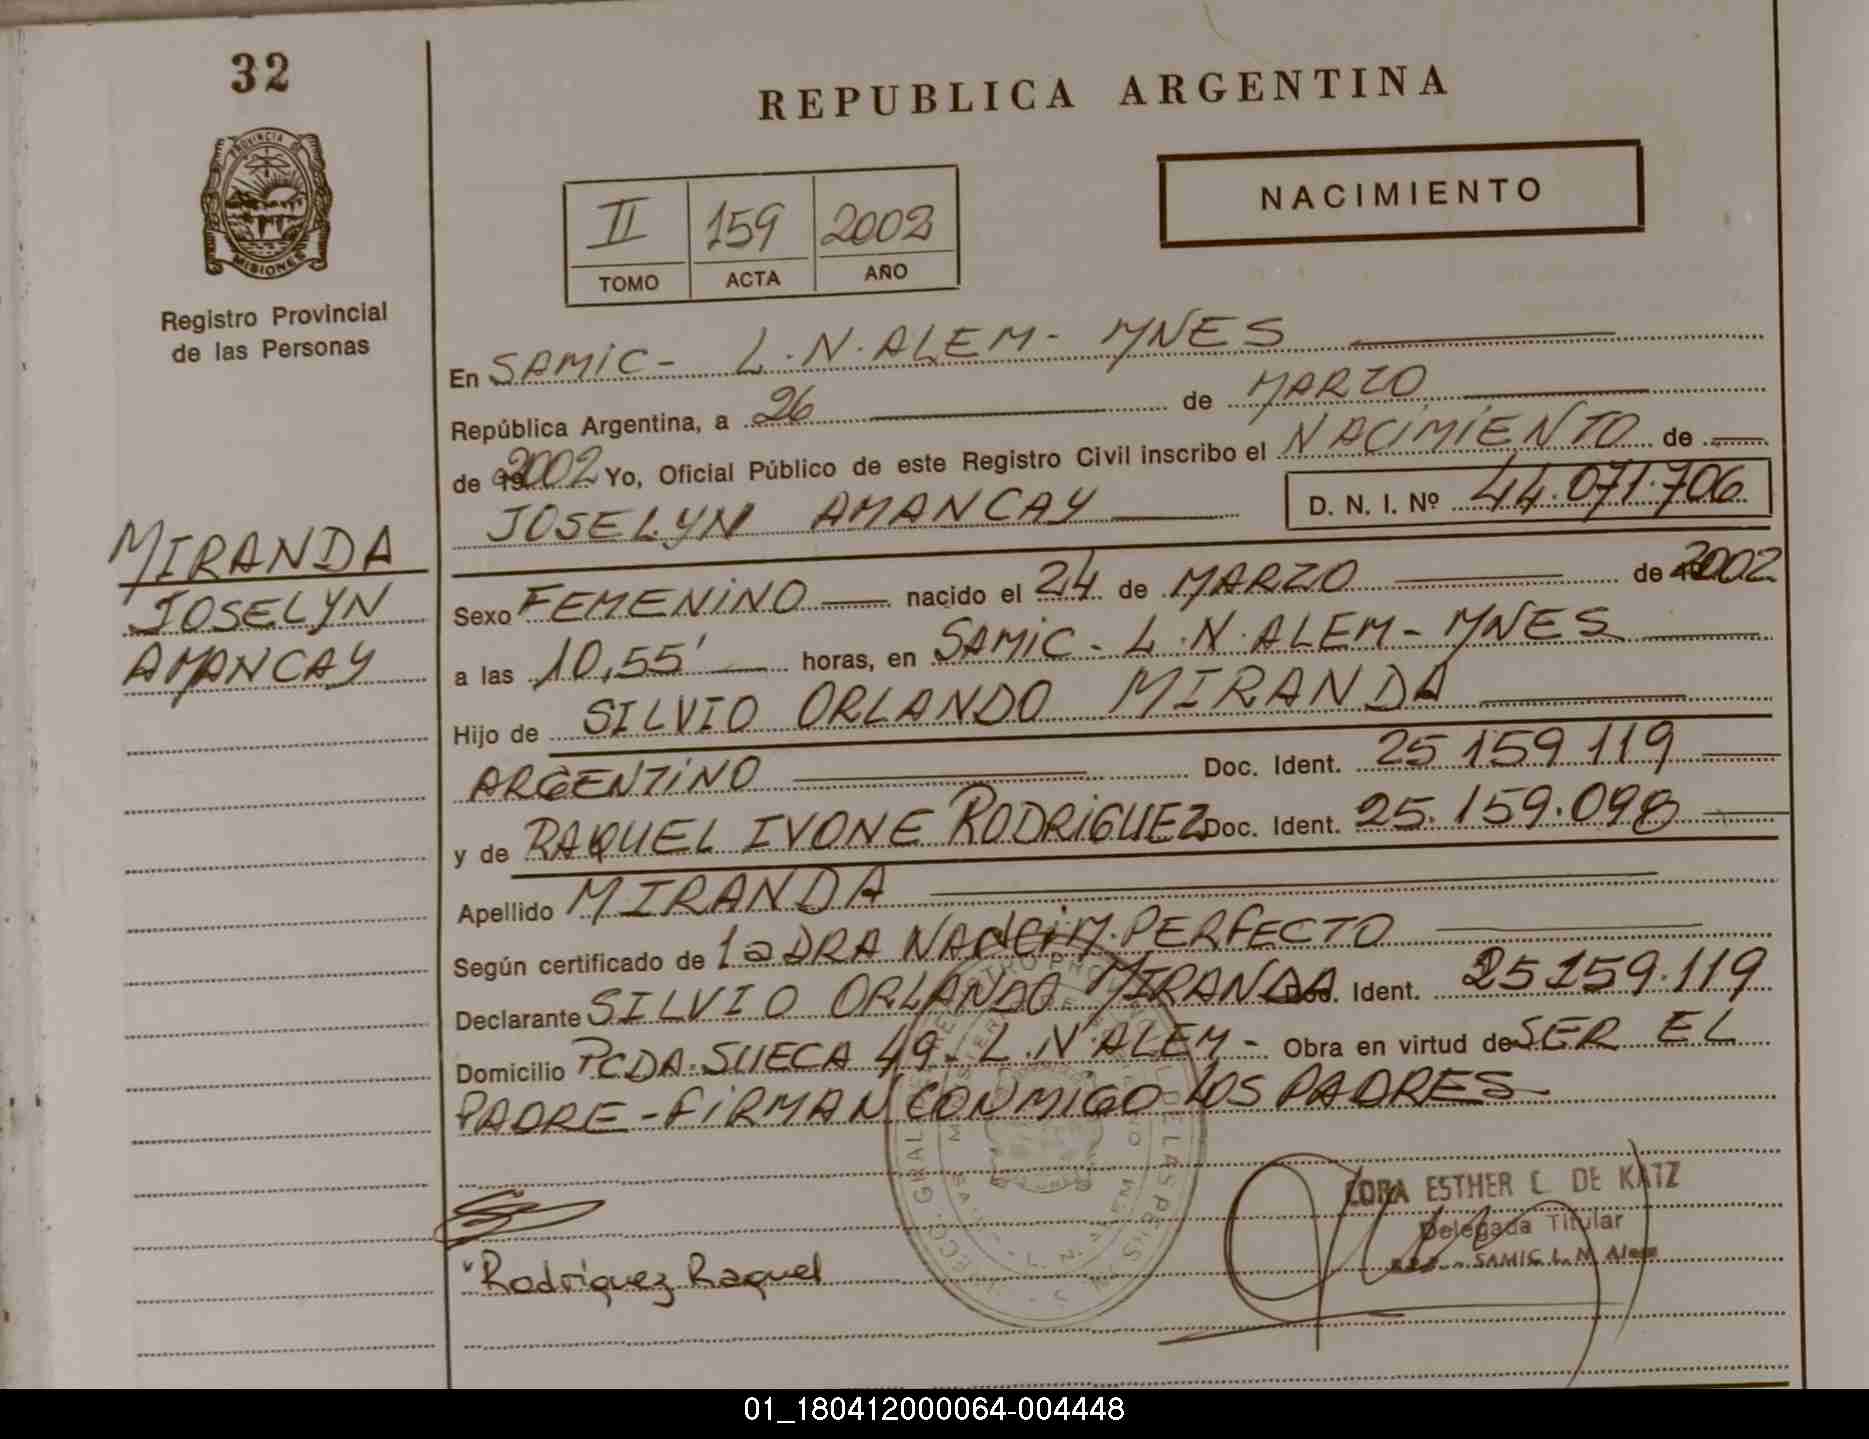 32
PROVINCIA DE
MISIONES
Registro Provincial
de las Personas
MIRANDA
JOSELYN
AMANCAY
REPUBLICA ARGENTINA
II 159 2002
TOMO ACTA AÑO
NACIMIENTO
En SAMIC - L.N. ALEM - MNES
República Argentina, a 26 de MARZO
de 2002 Yo, Oficial Público de este Registro Civil inscribo el NACIMIENTO de
JOSELYN AMANCAY D. N. I. Nº 44.071.706
Sexo FEMENINO nacido el 24 de MARZO de 2002
a las 10,55' horas, en SAMIC - L.N. ALEM - MNES
Hijo de SILVIO ORLANDO MIRANDA
ARGENTINO Doc. Ident. 25 159 119
y de RAQUEL IVONE RODRIGUEZ Doc. Ident. 25.159.098
Apellido MIRANDA
Según certificado de 1a DRA PERFECTO
Declarante SILVIO ORLANDO MIRANDA Doc. Ident. 25 159.119
Domicilio PCDA. SUECA 49 - L.N ALEM - Obra en virtud de SER EL
PADRE - FIRMAN CONMIGO LOS PADRES
ESTHER C. DE KATZ
Delegada Titular
SAMIC L. N. Alem
Rodriguez Raquel
01_180412000064-004448